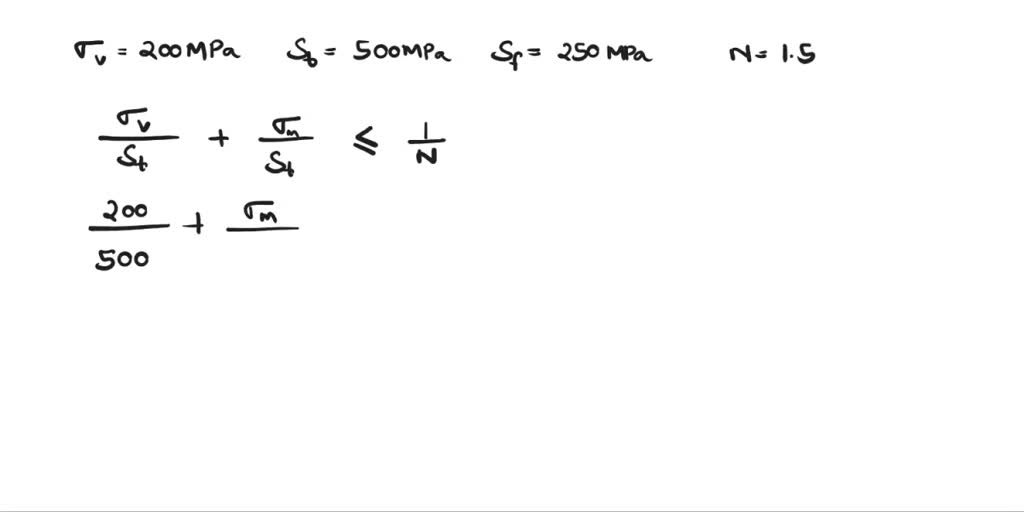 σᵥ = 200MPa S_b = 500MPa S_f = 250 MPa N = 1.5
σᵥ/S_t + σₘ/S_t ≤ 1/N
200/500 + σₘ/